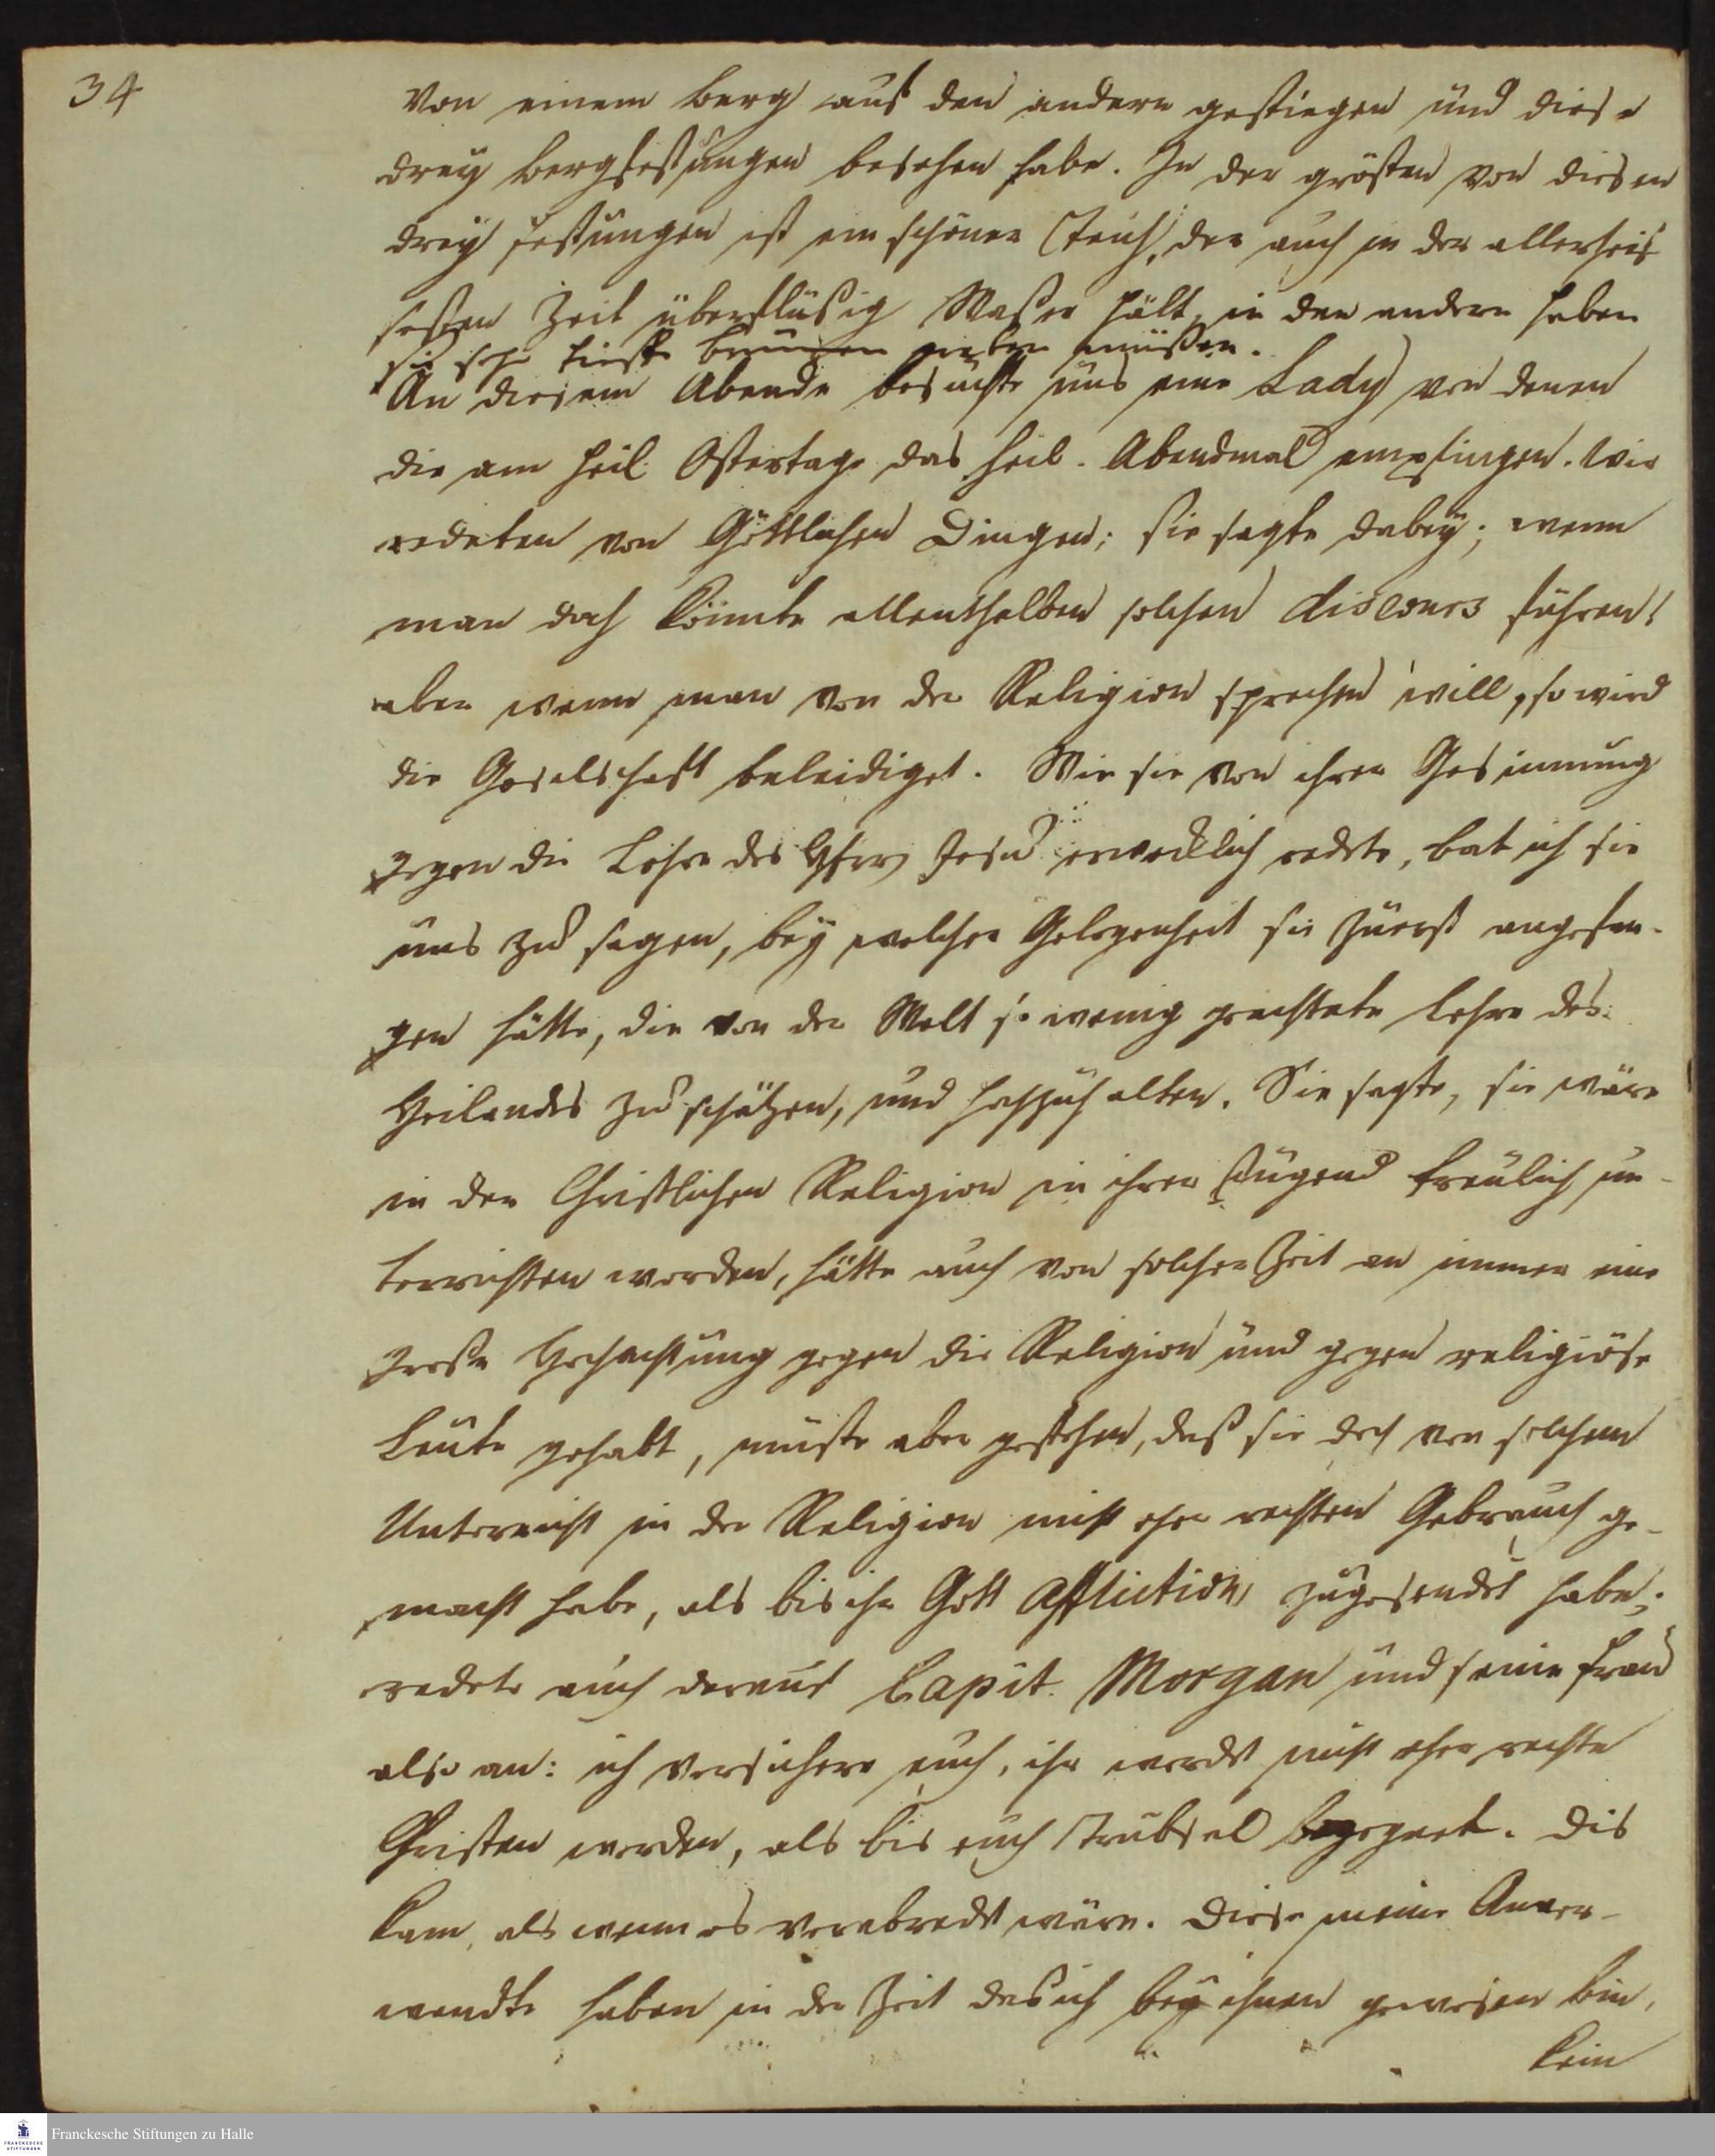 34
von einem Berg auf den andern gestiegen und diese
drey Bergfestungen besehen habe. In der grösten von diesen
drey Festungen ist ein schöner Teich, der auch in der allerheis
sesten Zeit überflüßig Waßer hält, in den andern haben
sie sehr tieffe Brunnen graben müßen.
An diesem Abende besuchte uns eine Lady von denen
die am heil. Ostertage das heil. Abendmal empfingen. Wir
redeten von Göttlichen Dingen; sie sagte dabey; wenn
man doch könnte allenthalben solchen discours führen!
aber wenn man von der Religion sprechen will, so wird
die Geselschaft beleidiget. Wie sie von ihrer Gesinnung
gegen die Lehre des Hhern Jesu erwecklich redete, bat ich sie
uns zu sagen, bey welcher Gelegenheit sie zuerst angefan-
gen hätte, die von der Welt so wenig geachtete Lehre des
Heilandes zu schätzen, und hochzuhalten. Sie sagte, sie wäre
in der Christlichen Religion in ihrer Jugend treulich un-
terrichtet worden, hätte auch von solcher Zeit an immer eine
große Hochachtung gegen die Religion und gegen religiöse
Leute gehabt, müste aber gestehen, daß sie doch von solchem
Unterricht in der Religion nicht eher rechten Gebrauch ge-
macht habe, als bis ihr Gott affliction zugesendet habe;
redete auch darauf Capit. Morgan und seine Frau
also an: ich versichere euch, ihr werdet nicht eher rechte
Christen werden, als bis euch Trübsal begegnet. Dis
kam, als wenn es verabredet wäre. Diese meine Anver-
wandte haben in der Zeit das ich bey ihnen gewesen bin,
kein
Franckesche Stiftungen zu Halle